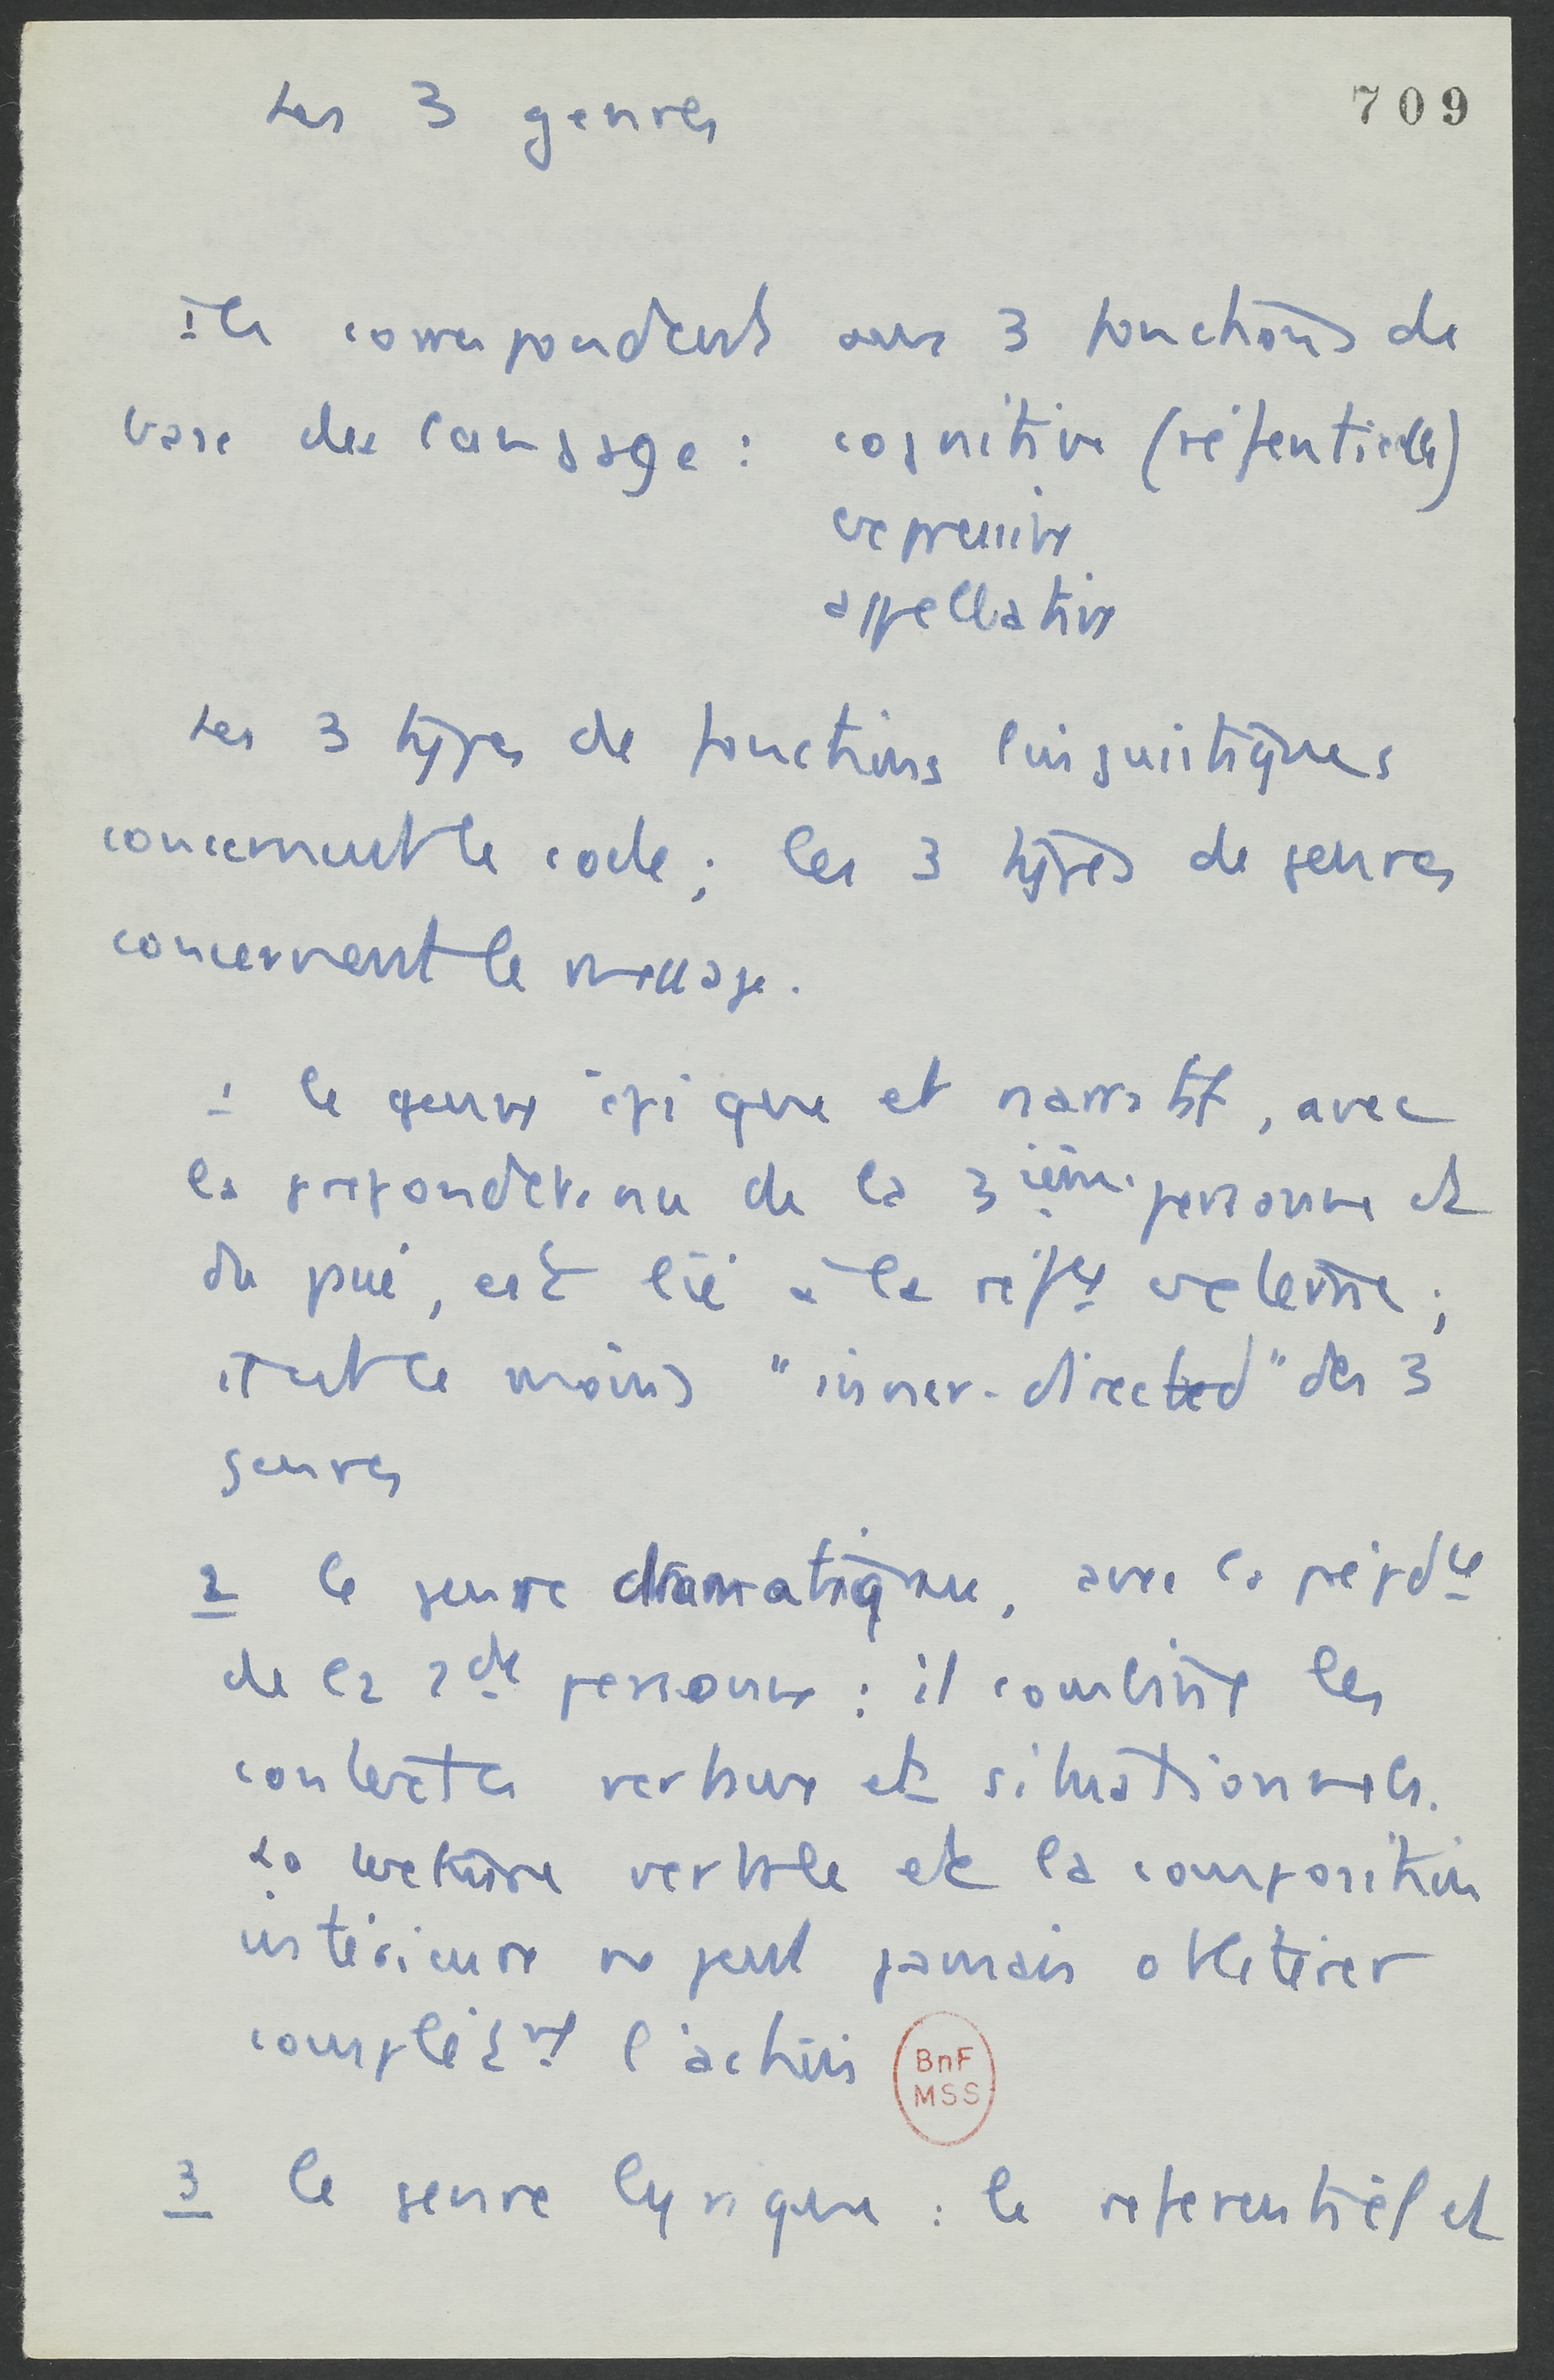 Les 3 genres
709
ils correspondent aux 3 fonctions de
base du langage : cognitive (réfentielle)
expressive
appellative
Les 3 types de fonctions linguistiques
concernent le code ; les 3 types de genres
concernent le message.
1 le genre épique et narratif, avec
la prépondérance de la 3ième personne et
du passé, est lié à la réfce externe ;
il est le moins "inner-directed" des 3
genres
2 le genre dramatique, avec la prépdce
de la 2de personne : il combine les
contextes verbaux et situationnels.
La texture verbale et la composition
intérieure ne peut jamais oblitérer
complètnt l'action
BnF
MSS
3 le genre lyrique : le referentiel et